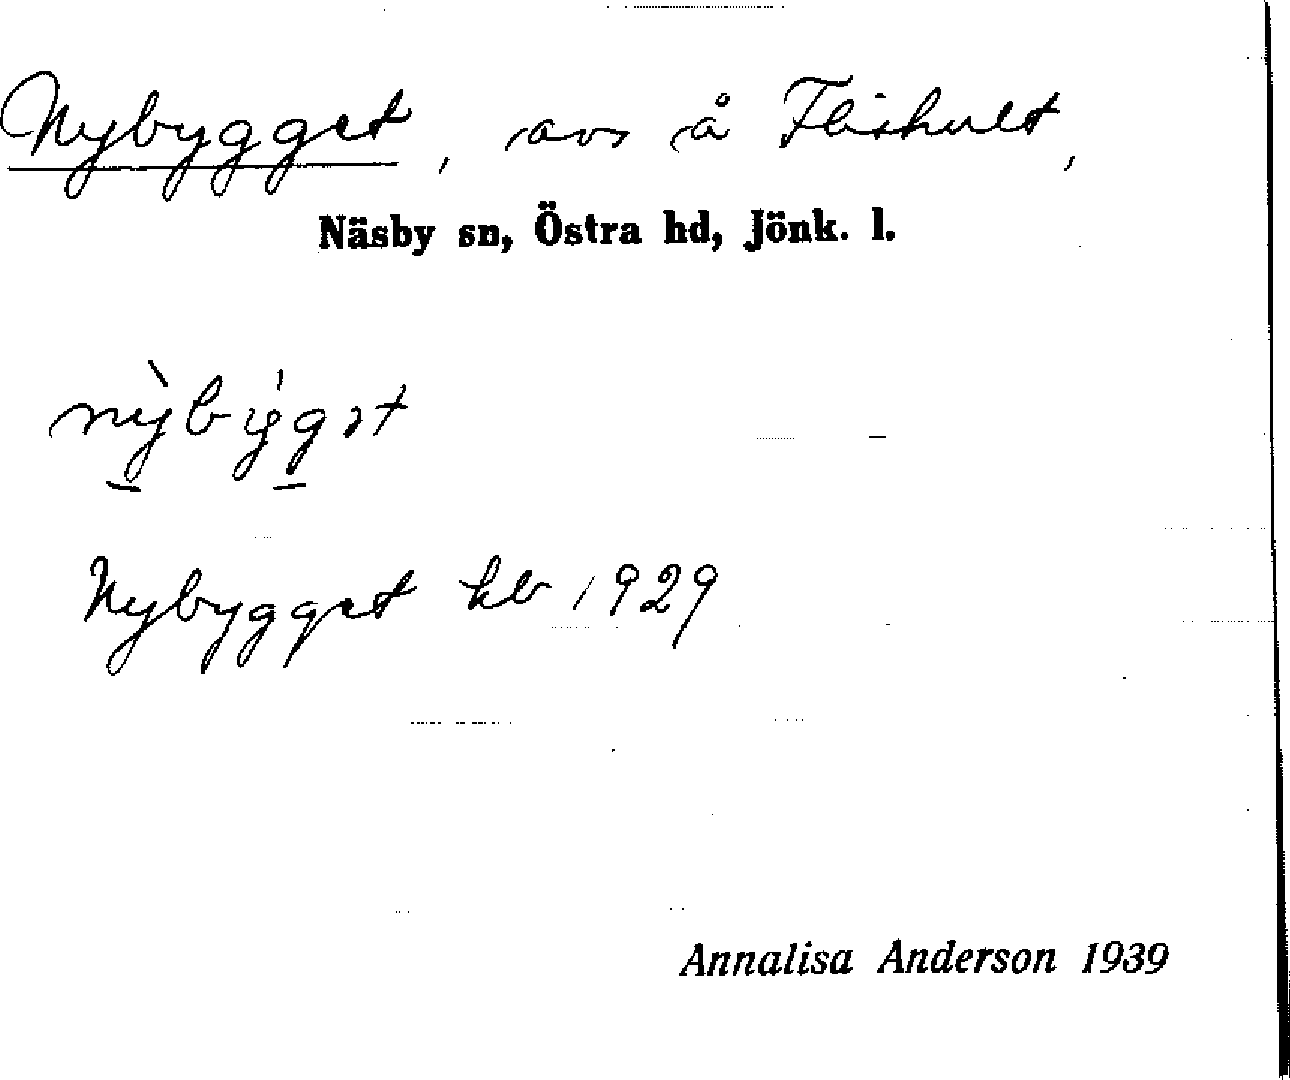 Nybygget, avs å Flishult,
Näsby sn, Östra hd, Jönk. l.
nỳ̱by̍g̱ət
Nybygget kb 1929
Annalisa Anderson 1939